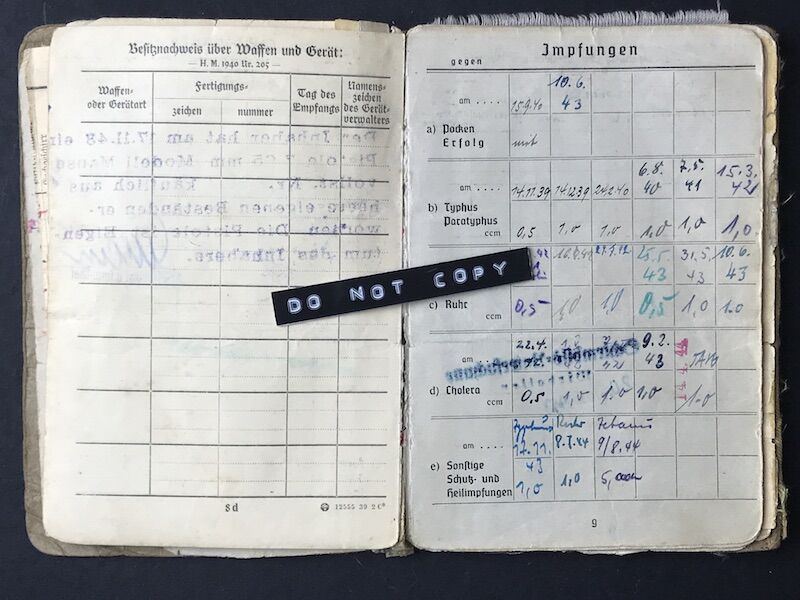 Besitznachweis über Waffen und Gerät:
— H. M. 1940 Nr. 205 —
Waffen- oder Gerätart
Fertigungs-
zeichen
nummer
Tag des Empfangs
Namens- zeichen des Gerät- verwalters
Der Inhaber hat am 17.11.43 ein
Pistole 7,65 mm Modell Mauser
käuflich aus
eigenen Beständen er-
worben. Die Pistole ist Eigen-
tum des Inhabers.
8 d
12555 39 2 C
DO NOT COPY
Impfungen
gegen
am . . . .
15.9.40
10.6. 43
a) Pocken
Erfolg
mit
am . . . .
14.11.39
14.12.39
24.2.40
6.8. 40
7.5. 41
15.3. 42
b) Typhus
Paratyphus
ccm
0,5
1,0
1,0
1,0
1,0
1,0
25.5. 43
31.5. 43
10.6. 43
c) Ruhr
ccm
0,5
1,0
1,0
0,5
1,0
1.0
am . . . .
22.4.
9.2. 43
d) Cholera
ccm
0,5
1,0
1.0
1,0
1.0
Typhus
Ruhr
Tetanus
am . . . .
17.11. 43
8.7.44
9/8.44
e) Sonstige
Schutz- und
Heilimpfungen
1,0
1,0
9